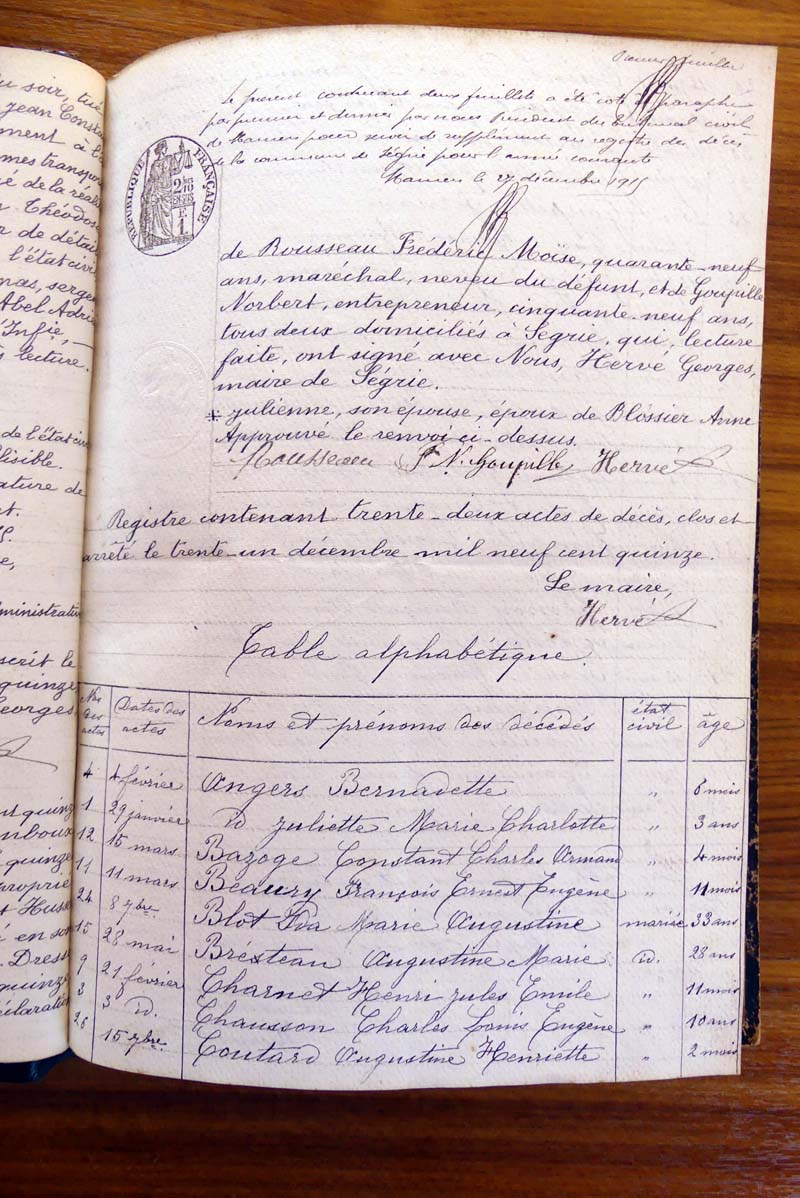 u soir, tué
Jean Consta
ment à l'a
mes transpor
é de la réali
Théodose
r de détai
l'état civi
mas, serger
Abel Adrie
d'Infie,
lecture.
de l'état civ
lisible.
ature de
dministrateur
scrit le
quinze
Georges,
nt quinze
quinze
proprié
t Husse
é en son
Dress
quinze
déclaration
Le présent contenant deux feuillets a été coté et paraphé
par premier et dernier par nous Président du tribunal civil
de Mamers pour servir de supplément au registre des décès
de la commune de Ségrie pour l'année courante
Mamers le 27 décembre 1915
RÉPUBLIQUE FRANÇAISE
2/10 EN SUS
E 1.
de Rousseau Frédéric Moïse, quarante-neuf
ans, maréchal, neveu du défunt, et de Goupille
Norbert, entrepreneur, cinquante-neuf ans,
tous deux domiciliés à Ségrie, qui, lecture
faite, ont signé avec Nous, Hervé Georges,
maire de Ségrie.
* Julienne, son épouse, époux de Blossier Anne
Approuvé le renvoi ci-dessus.
Rousseau N. Goupille Hervé
Registre contenant trente-deux actes de décès, clos et
arrêté le trente-un décembre mil neuf cent quinze.
Le maire,
Hervé
Table alphabétique.
Nos des actes Dates des actes Noms et prénoms des décédés état civil âge
4 4 février Angers Bernadette " 8 mois
1 29 janvier id Juliette Marie Charlotte " 3 ans
12 15 mars Bazoge Constant Charles Armand " 4 mois
11 11 mars Beaury François Ernest Eugène " 11 mois
24 8 7bre Blot Ida Marie Augustine mariée 33 ans
15 28 mai Brésteau Augustine Marie id. 28 ans
9 21 février Charnet Henri Jules Emile " 11 mois
3 3 id. Chausson Charles Louis Eugène " 10 ans
26 15 7bre Coutard Augustine Henriette " 2 mois